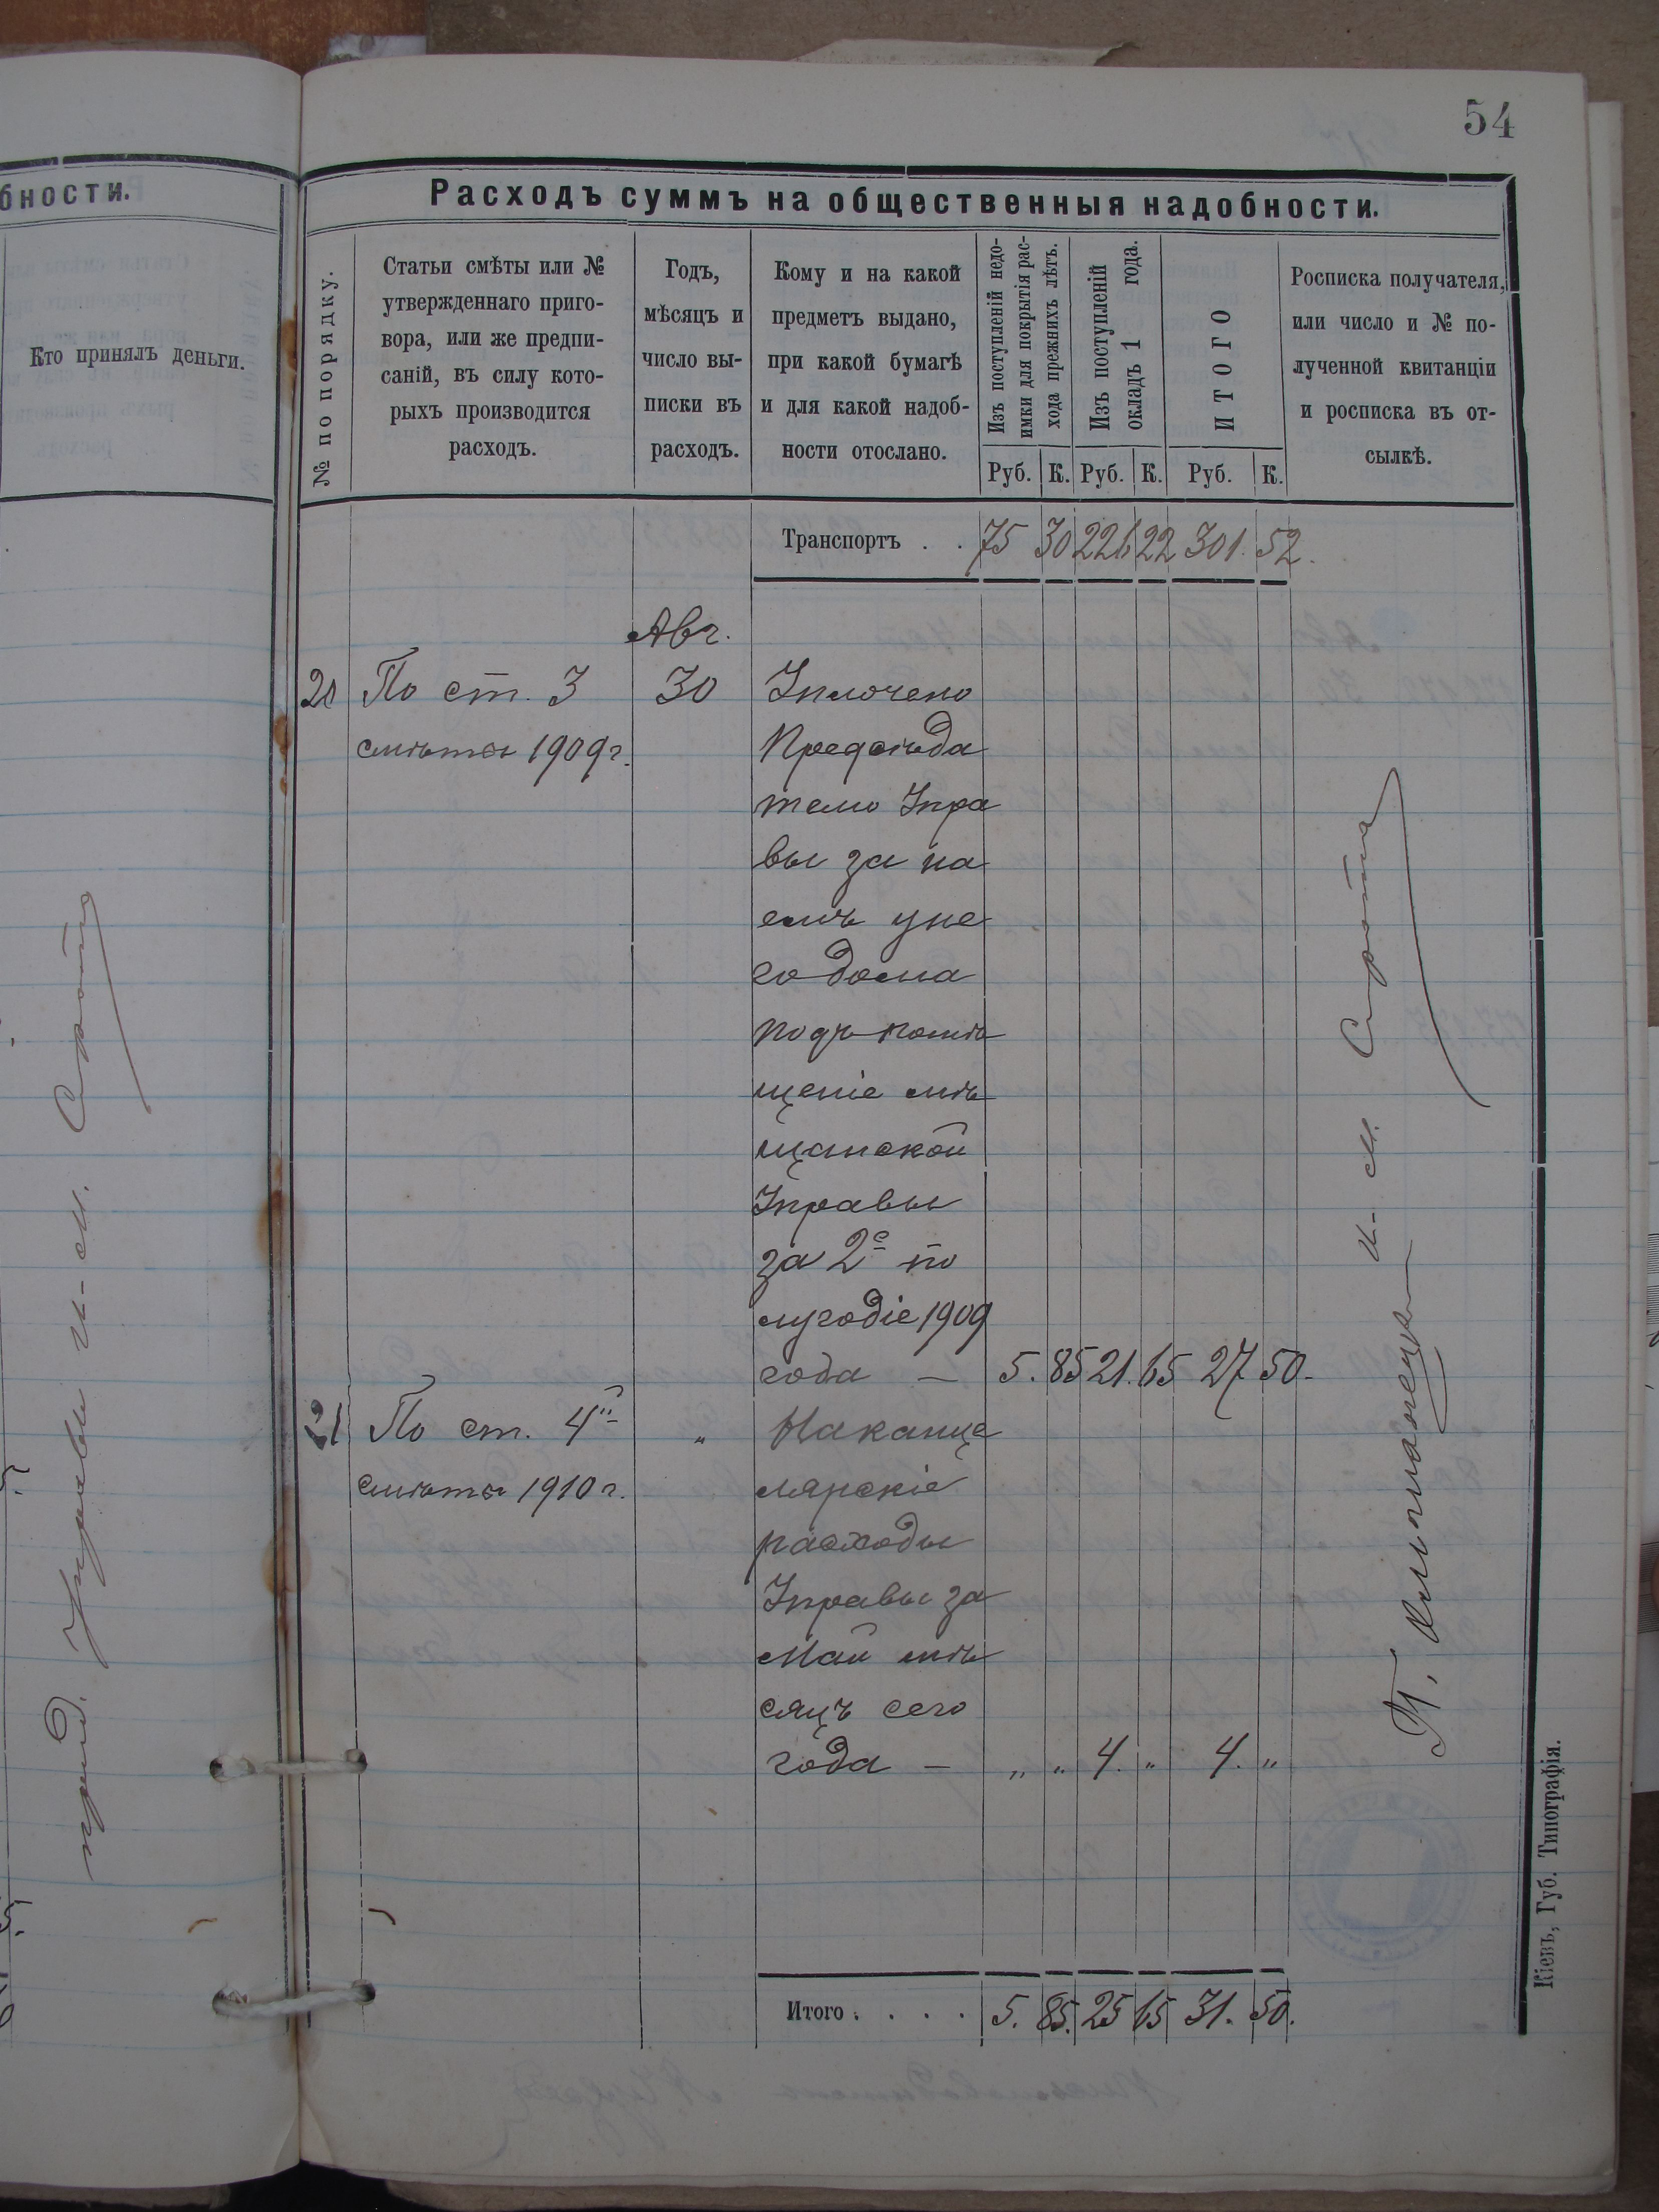 54
бности.
Кто принялъ деньги.
Расходъ суммъ на общественныя надобности.
№ по порядку.
Статьи смѣты или №
утвержденнаго приго-
вора, или же предпи-
саній, въ силу кото-
рыхъ производится
расходъ.
Годъ,
мѣсяцъ и
число вы-
писки въ
расходъ.
Кому и на какой
предметъ выдано,
при какой бумагѣ
и для какой надоб-
ности отослано.
Изъ поступленій недо-
имки для покрытія рас-
хода прежнихъ лѣтъ.
Изъ поступленій
окладъ 1 года.
ИТОГО
Росписка получателя,
или число и № по-
лученной квитанціи
и росписка въ от-
сылкѣ.
Руб. К. Руб. К. Руб. К.
Транспортъ . . 75 30 226 22 301. 52.
Авг.
20 По ст. 3 30 Уплочено
смѣты 1909 г. Предсѣда
телю Упра
вы за на
емъ уне
го дома
подъ помѣ
щеніе мѣ
щанской
Управы
за 2е по
лугодіе 1909
года — 5. 85 21. 65 27 50.
21 По ст. 4й „ На канце
смѣты 1910 г. лярскіе
расходы
Управы за
Май мѣ
сяцъ сего
года — „ „ 4. „ 4. „
Итого . . . . 5. 85. 25 65 31. 50.
и-м. Сирота
Управы и-м. Сирота
Кіевъ, Губ. Типографія.